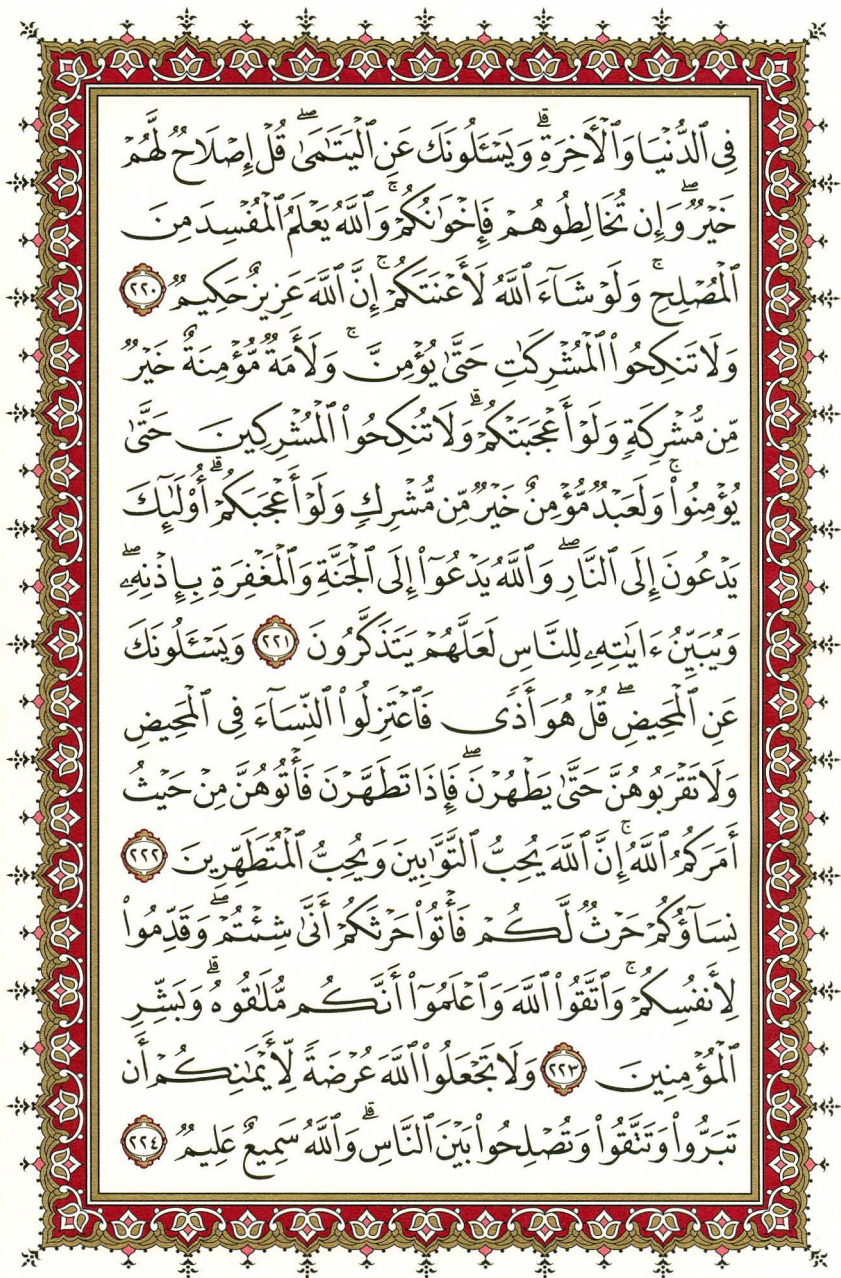 فِى ٱلدُّنۡيَا وَٱلۡأٓخِرَةِۗ وَيَسۡـَٔلُونَكَ عَنِ ٱلۡيَتَٰمَىٰۖ قُلۡ إِصۡلَاحٞ لَّهُمۡ
خَيۡرٞۖ وَإِن تُخَالِطُوهُمۡ فَإِخۡوَٰنُكُمۡۚ وَٱللَّهُ يَعۡلَمُ ٱلۡمُفۡسِدَ مِنَ
ٱلۡمُصۡلِحِۚ وَلَوۡ شَآءَ ٱللَّهُ لَأَعۡنَتَكُمۡۚ إِنَّ ٱللَّهَ عَزِيزٌ حَكِيمٞ ٢٢٠
وَلَا تَنكِحُواْ ٱلۡمُشۡرِكَٰتِ حَتَّىٰ يُؤۡمِنَّۚ وَلَأَمَةٞ مُّؤۡمِنَةٌ خَيۡرٞ
مِّن مُّشۡرِكَةٖ وَلَوۡ أَعۡجَبَتۡكُمۡۗ وَلَا تُنكِحُواْ ٱلۡمُشۡرِكِينَ حَتَّىٰ
يُؤۡمِنُواْۚ وَلَعَبۡدٞ مُّؤۡمِنٌ خَيۡرٞ مِّن مُّشۡرِكٖ وَلَوۡ أَعۡجَبَكُمۡۗ أُوْلَٰٓئِكَ
يَدۡعُونَ إِلَى ٱلنَّارِۖ وَٱللَّهُ يَدۡعُوٓاْ إِلَى ٱلۡجَنَّةِ وَٱلۡمَغۡفِرَةِ بِإِذۡنِهِۦۖ
وَيُبَيِّنُ ءَايَٰتِهِۦ لِلنَّاسِ لَعَلَّهُمۡ يَتَذَكَّرُونَ ٢٢١ وَيَسۡـَٔلُونَكَ
عَنِ ٱلۡمَحِيضِۖ قُلۡ هُوَ أَذٗى فَٱعۡتَزِلُواْ ٱلنِّسَآءَ فِى ٱلۡمَحِيضِ
وَلَا تَقۡرَبُوهُنَّ حَتَّىٰ يَطۡهُرۡنَۖ فَإِذَا تَطَهَّرۡنَ فَأۡتُوهُنَّ مِنۡ حَيۡثُ
أَمَرَكُمُ ٱللَّهُۚ إِنَّ ٱللَّهَ يُحِبُّ ٱلتَّوَّٰبِينَ وَيُحِبُّ ٱلۡمُتَطَهِّرِينَ ٢٢٢
نِسَآؤُكُمۡ حَرۡثٞ لَّكُمۡ فَأۡتُواْ حَرۡثَكُمۡ أَنَّىٰ شِئۡتُمۡۖ وَقَدِّمُواْ
لِأَنفُسِكُمۡۚ وَٱتَّقُواْ ٱللَّهَ وَٱعۡلَمُوٓاْ أَنَّكُم مُّلَٰقُوهُۗ وَبَشِّرِ
ٱلۡمُؤۡمِنِينَ ٢٢٣ وَلَا تَجۡعَلُواْ ٱللَّهَ عُرۡضَةٗ لِّأَيۡمَٰنِكُمۡ أَن
تَبَرُّواْ وَتَتَّقُواْ وَتُصۡلِحُواْ بَيۡنَ ٱلنَّاسِۗ وَٱللَّهُ سَمِيعٌ عَلِيمٞ ٢٢٤